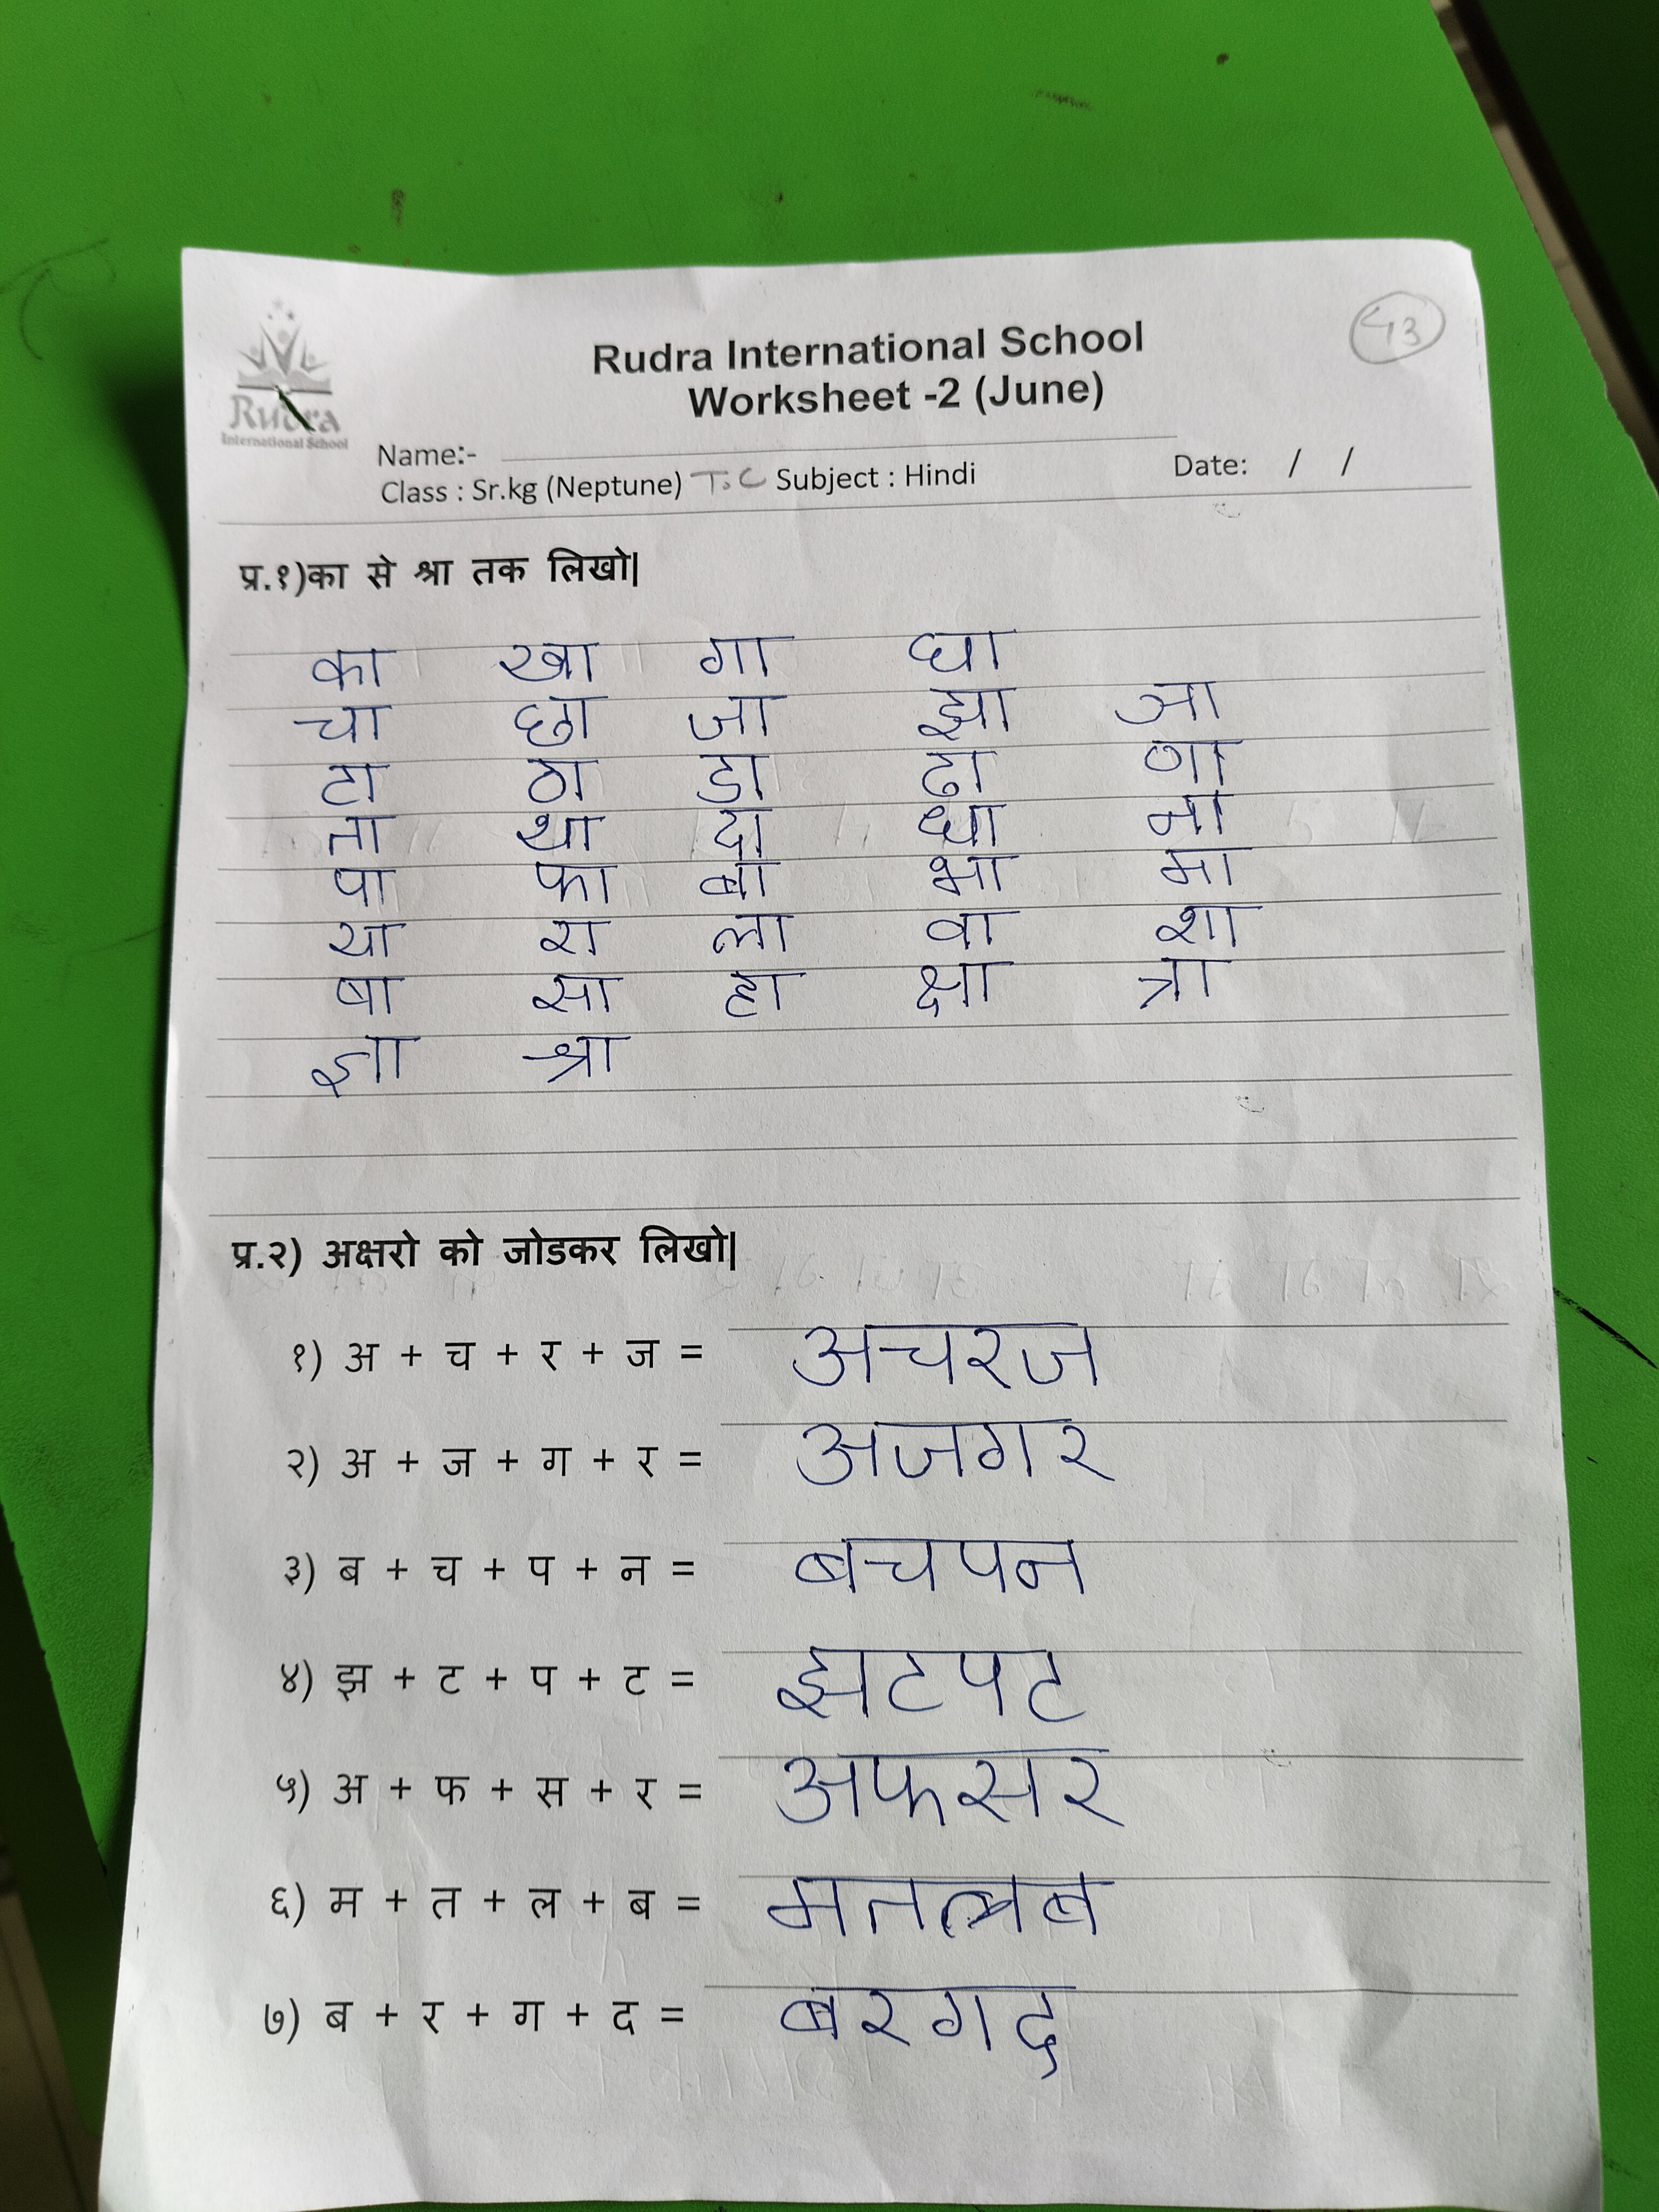 Rudra
International School
Rudra International School
Worksheet -2 (June)
43
Name:-
Date: / /
Class : Sr.kg (Neptune) T.C Subject : Hindi
प्र.१)का से श्रा तक लिखो|
का खा गा घा
चा छा जा झा ञा
टा ठा डा ढा णा
ता था दा धा ना
पा फा बा भा मा
या रा ला वा शा
षा सा हा क्षा त्रा
ज्ञा श्रा
प्र.२) अक्षरो को जोडकर लिखो|
१) अ + च + र + ज = अचरज
२) अ + ज + ग + र = अजगर
३) ब + च + प + न = बचपन
४) झ + ट + प + ट = झटपट
५) अ + फ + स + र = अफसर
६) म + त + ल + ब = मतलब
७) ब + र + ग + द = बरगद